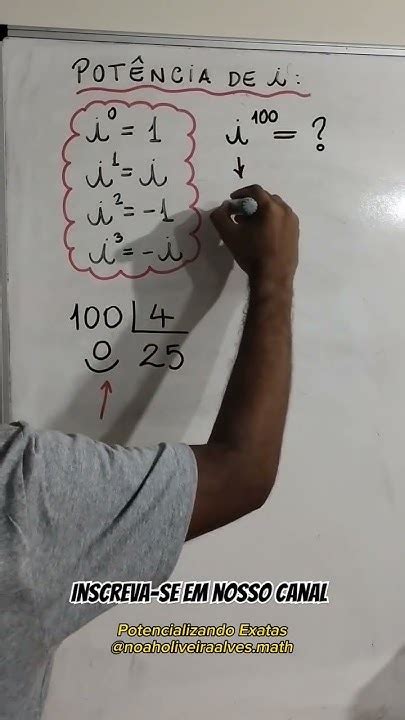 POTÊNCIA DE i:
i⁰ = 1
i¹ = i
i² = -1
i³ = -i
i¹⁰⁰ = ?
100 | 4
0 25
INSCREVA-SE EM NOSSO CANAL
Potencializando Exatas
@noaholiveiraalves.math